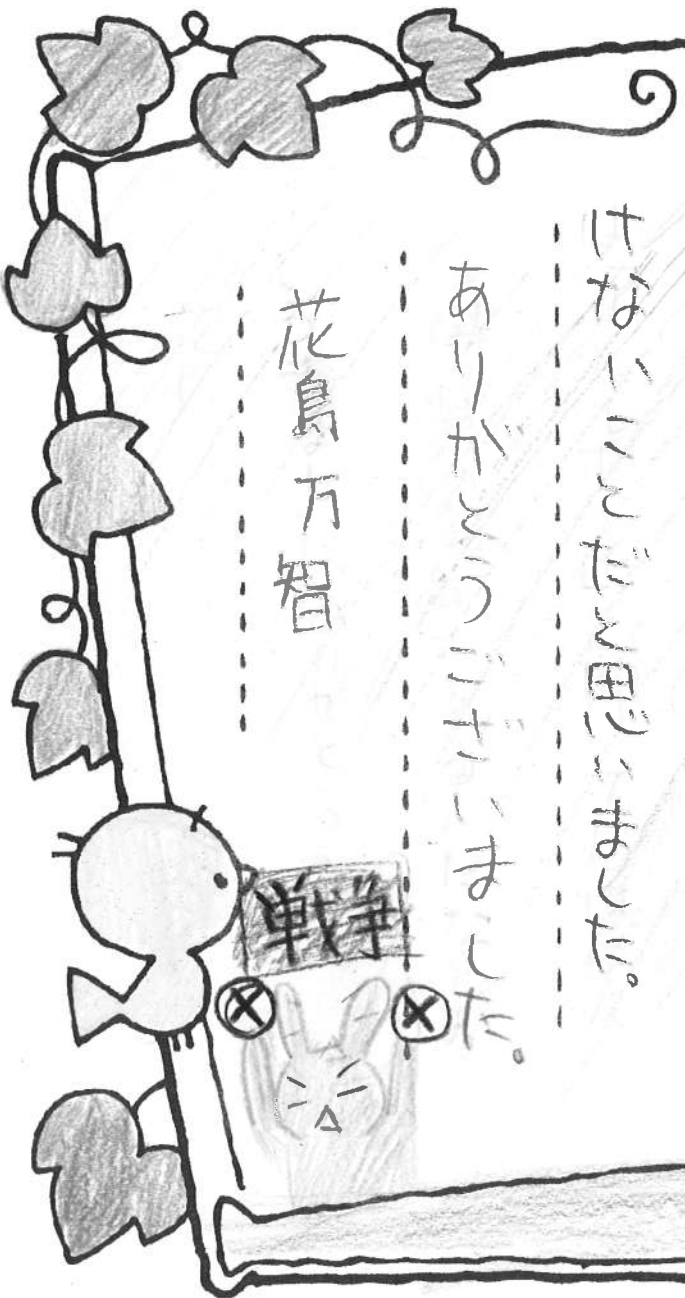 けないことだと思いました。
ありがとうございました。
花島万智
戦争